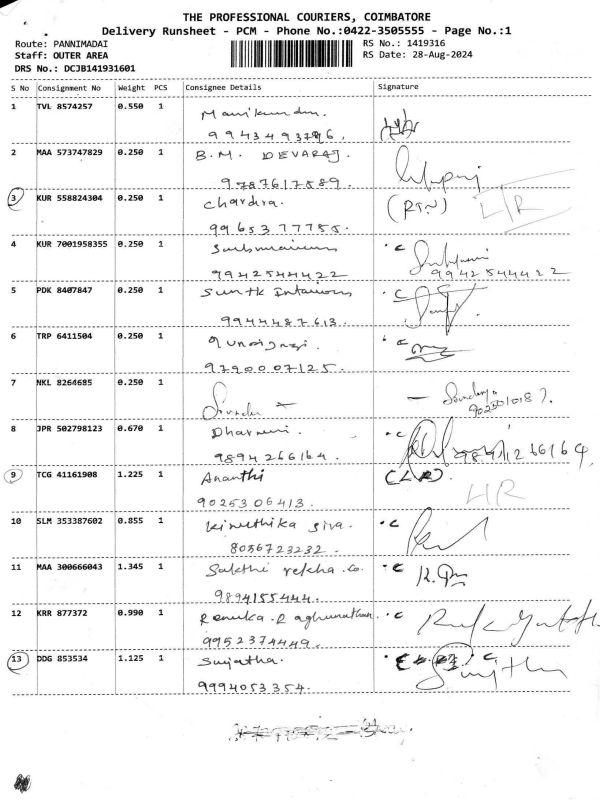 THE PROFESSIONAL COURIERS, COIMBATORE
Delivery Runsheet - PCM - Phone No.:0422-3505555 - Page No.:1
Route: PANNIMADAI RS No.: 1419316
Staff: OUTER AREA RS Date: 28-Aug-2024
DRS No.: DCJB141931601
S No Consignment No Weight PCS Consignee Details Signature
1 TVL 8574257 0.550 1
Manikandan.
2 MAA 573747829 0.250 1 B.M. DEVARAJ.
9787617589.
3 KUR 558824304 0.250 1 Chandra. (RTN) L/R
9965377755.
4 KUR 7001958355 0.250 1 . C
9942544422 9942544422
5 PDK 8407847 0.250 1 Interiors . C
9944487613.
6 TRP 6411504 0.250 1 . C
9790007125.
7 NKL 8264685 0.250 1
8 JPR 502798123 0.670 1 Dharani. . C
9894266164.
9 TCG 41161908 1.225 1 Ananthi (LR). L/R
9025306413.
10 SLM 353387602 0.855 1 Kiruthika Siva. . C
8056723232.
11 MAA 300666043 1.345 1 Sakthi rekha. Co. . C
9894155444.
12 KRR 877372 0.990 1 Renuka. Raghunathan. . C
9952374449.
13 DDG 853534 1.125 1 Sujatha. . C
9994053354.